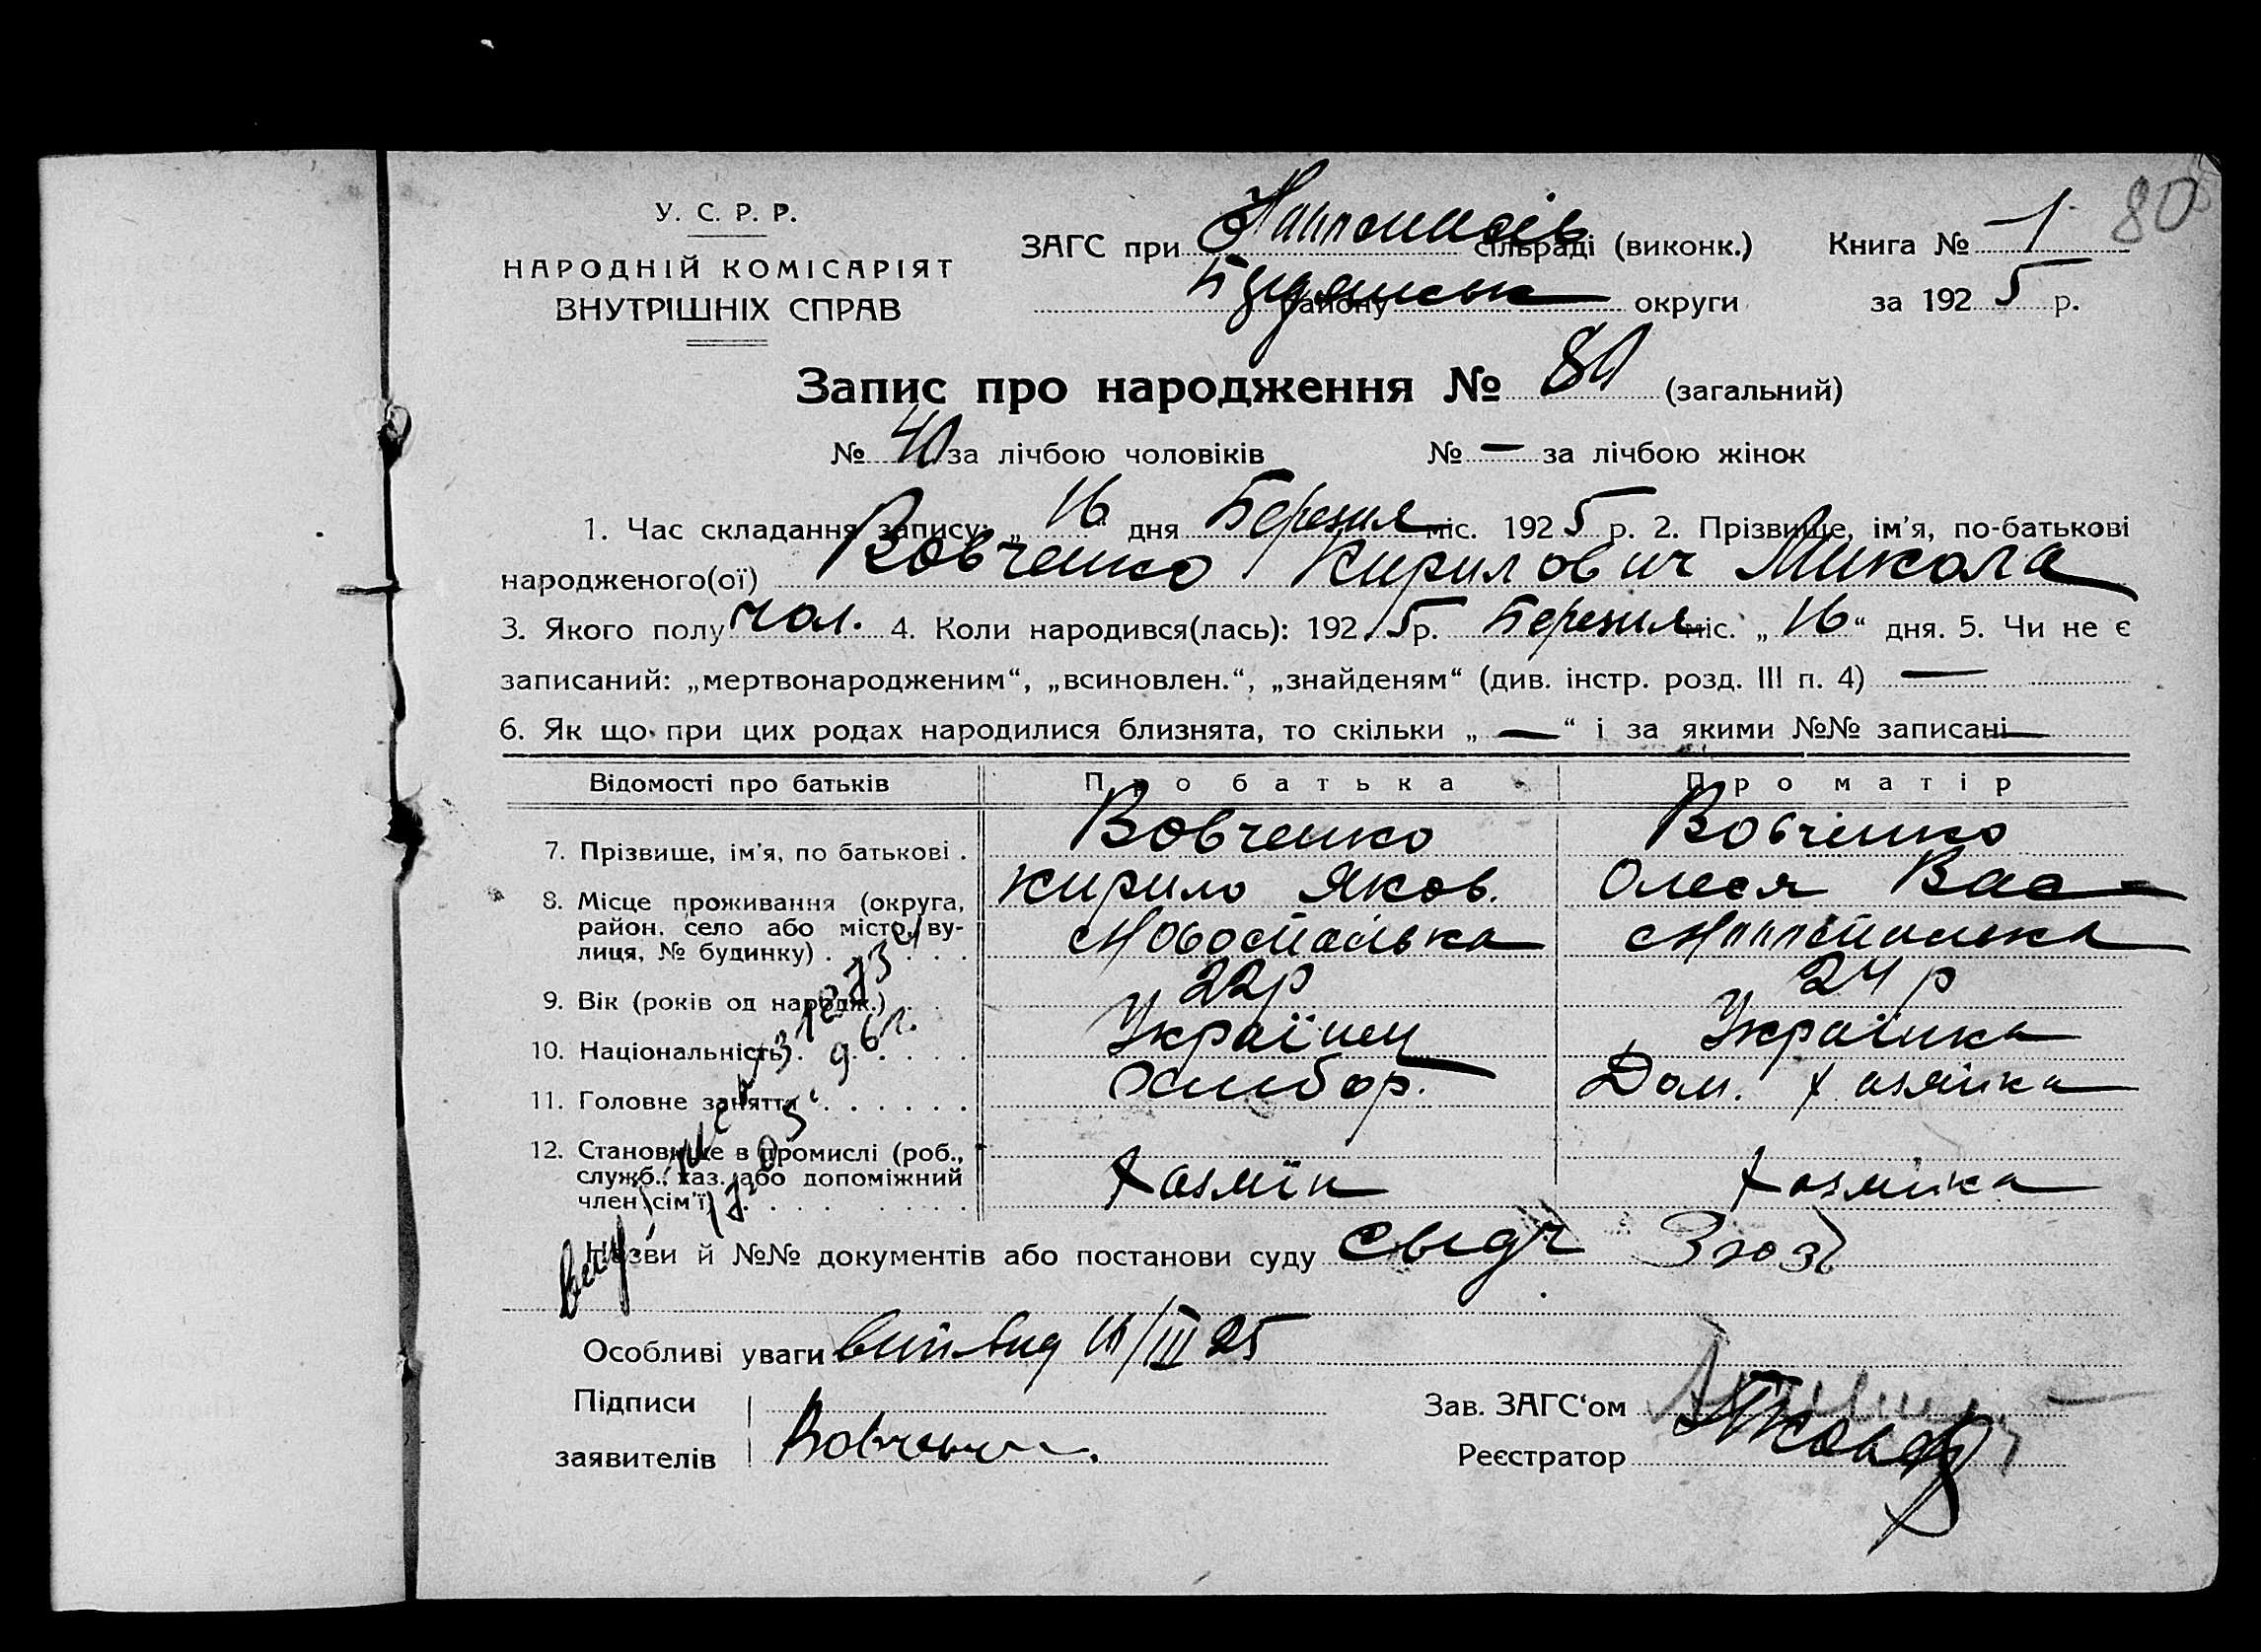 80
У. С. Р. Р.
НАРОДНІЙ КОМІСАРІЯТ
ВНУТРІШНІХ СПРАВ
ЗАГС при сільраді (виконк.) Книга № 1
району округи за 1925 р.
Запис про народження № 80 (загальний)
№ 40 за лічбою чоловіків № — за лічбою жінок
1. Час складання запису: „16“ дня Березня міс. 1925 р. 2. Прізвище, ім'я, по-батькові
народженого(ої) Вовченко Кирилович Микола
3. Якого полу чол. 4. Коли народився(лась): 1925 р. Березня міс. „16“ дня. 5. Чи не є
записаний: „мертвонародженим“, „всиновлен.“, „знайденям“ (див. інстр. розд. III п. 4) —
6. Як що при цих родах народилися близнята, то скільки „—“ і за якими №№ записані —
Відомості про батьків Про батька Про матір
7. Прізвище, ім'я, по батькові . Вовченко Вовченко
Кирило Яков. Олеся Вас
8. Місце проживання (округа,
район, село або місто, ву-
лиця, № будинку) . . . . Новоспаська
9. Вік (років од народж.) . . 22р 24р
10. Національність . . . . . Українец Українка
11. Головне заняття . . . . . . Хлибор. Дом. хазяйка
12. Становище в промислі (роб.,
служб., хаз. або допоміжний
член сім'ї) . . . . . . . Хазяїн Хазяйка
Назви й №№ документів або постанови суду
Особливі уваги 16/III 25
Підписи
заявителів Вовченко
Зав. ЗАГС'ом
Реєстратор